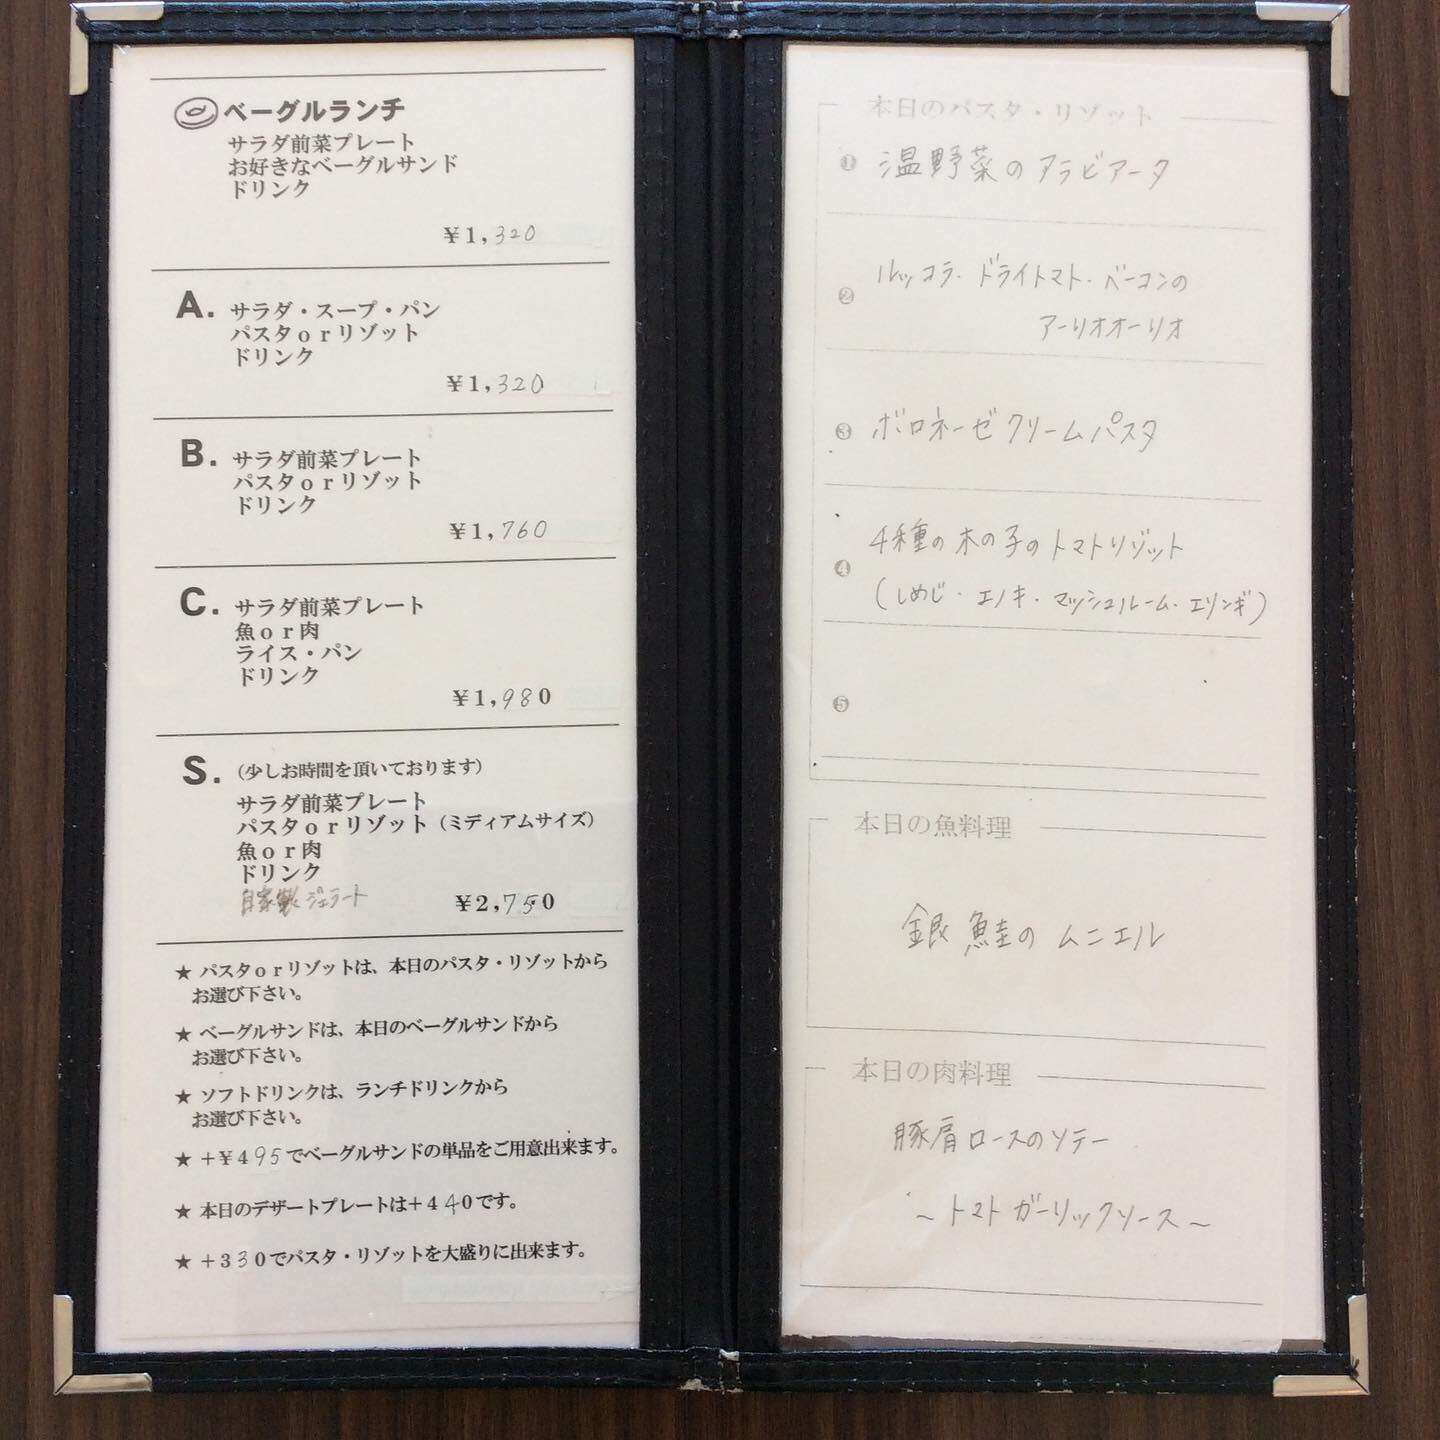 ベーグルランチ
サラダ前菜プレート
お好きなベーグルサンド
ドリンク
¥1,320
A. サラダ・スープ・パン
パスタorリゾット
ドリンク
¥1,320
B. サラダ前菜プレート
パスタorリゾット
ドリンク
¥1,760
C. サラダ前菜プレート
魚or肉
ライス・パン
ドリンク
¥1,980
S. (少しお時間を頂いております)
サラダ前菜プレート
パスタorリゾット(ミディアムサイズ)
魚or肉
ドリンク
自家製ジェラート
¥2,750
★ パスタorリゾットは、本日のパスタ・リゾットから
お選び下さい。
★ ベーグルサンドは、本日のベーグルサンドから
お選び下さい。
★ ソフトドリンクは、ランチドリンクから
お選び下さい。
★ +¥495でベーグルサンドの単品をご用意出来ます。
★ 本日のデザートプレートは+440です。
★ +330でパスタ・リゾットを大盛りに出来ます。
本日のパスタ・リゾット
❶ 温野菜のアラビアータ
❷ ルッコラ・ドライトマト・ベーコンの
アーリオオーリオ
❸ ボロネーゼクリームパスタ
❹ 4種の木の子のトマトリゾット
(しめじ・エノキ・マッシュルーム・エリンギ)
❺
本日の魚料理
銀鮭のムニエル
本日の肉料理
豚肩ロースのソテー
～トマトガーリックソース～